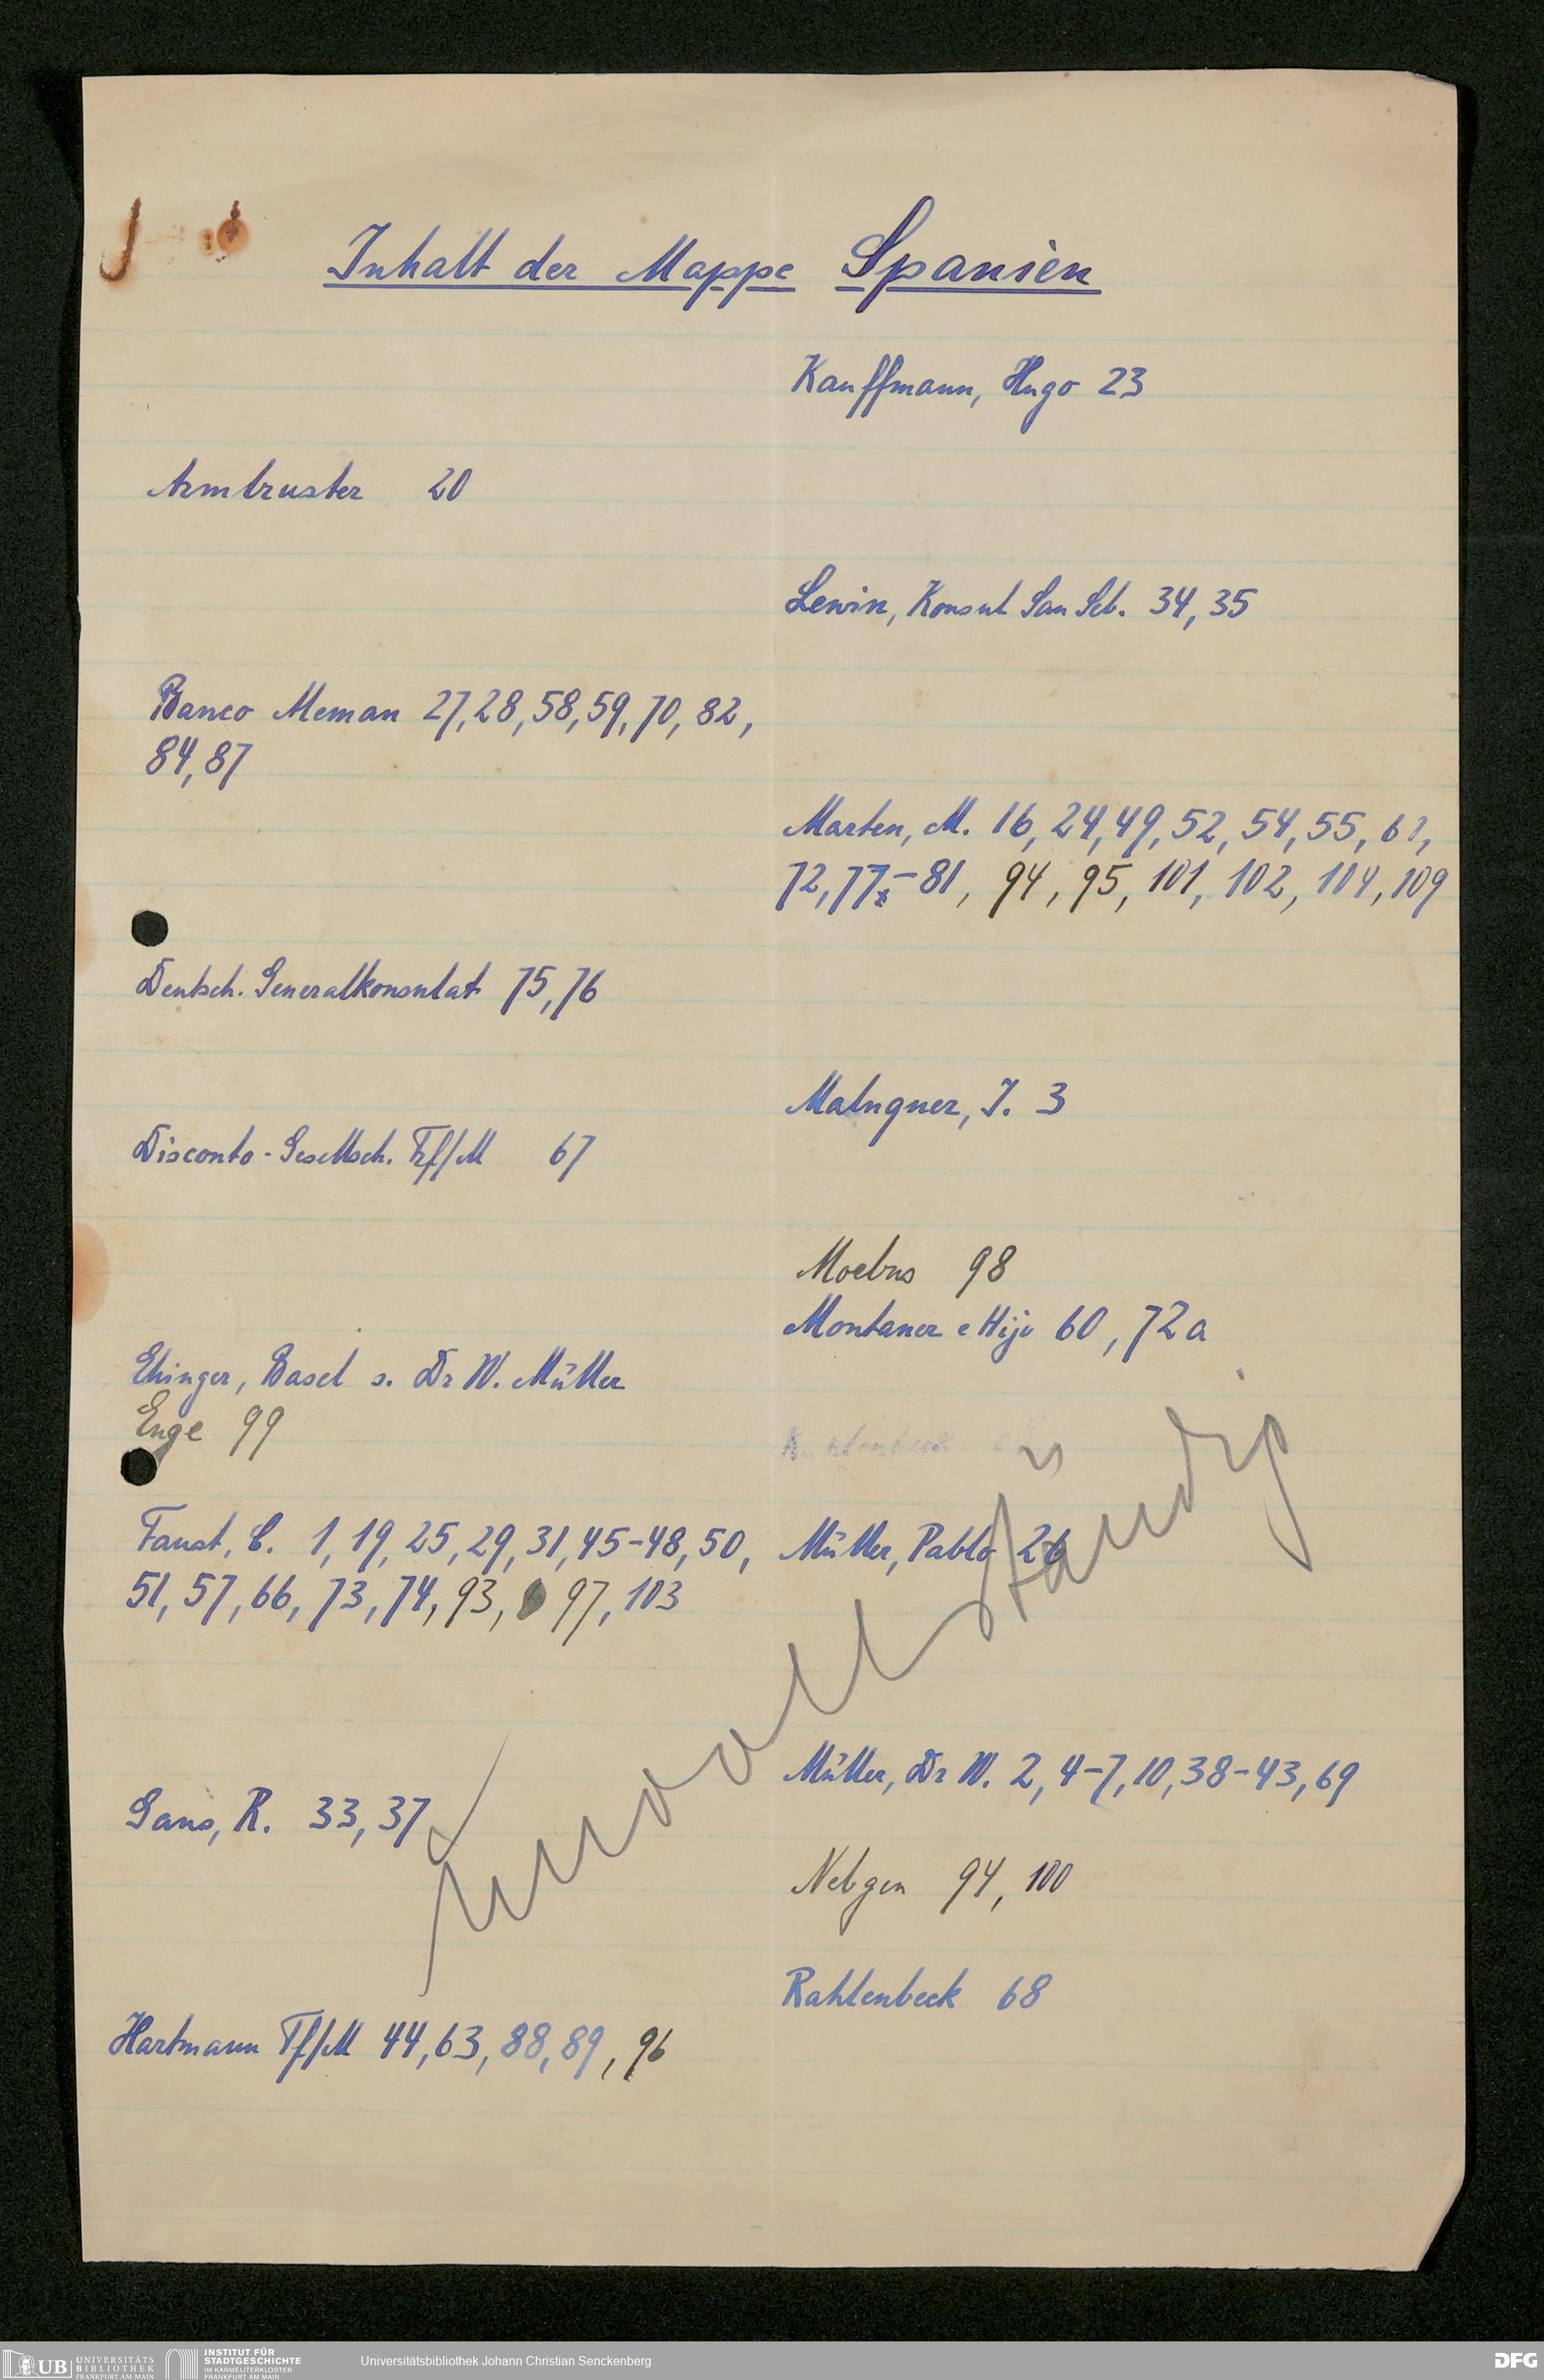 Inhalt der Mappe Spanien
Armbruster 20
Banco Aleman 27, 28, 58, 59, 70, 82,
84, 87
Deutsch. Generalkonsulat 75, 76
Disconto-Gesellsch. Frf/M 67
Ehinger, Basel s. Dr W. Müller
Enge 99
Faust, C. 1, 19, 25, 29, 31, 45-48, 50,
51, 57, 66, 73, 74, 93, 97, 103
Gans, R. 33, 37
Hartmann Ff/M 44, 63, 88, 89, 96
Kauffmann, Hugo 23
Lewin, Konsul San Seb. 34, 35
Marten, M. 16, 24, 49, 52, 54, 55,
72, 77-81, 94, 95, 101, 102, 104, 109
Maluquer, J. 3
Moebus 98
Montaner e Hijo 60, 72a
Müller, Pablo 26
Müller, Dr W. 2, 4-7, 10, 38-43, 69
Nebgen 94, 100
Rahlenbeck 68
unvollständig
UB UNIVERSITÄTS
BIBLIOTHEK
FRANKFURT AM MAIN
INSTITUT FÜR
STADTGESCHICHTE
IM KARMELITERKLOSTER
FRANKFURT AM MAIN
Universitätsbibliothek Johann Christian Senckenberg
DFG